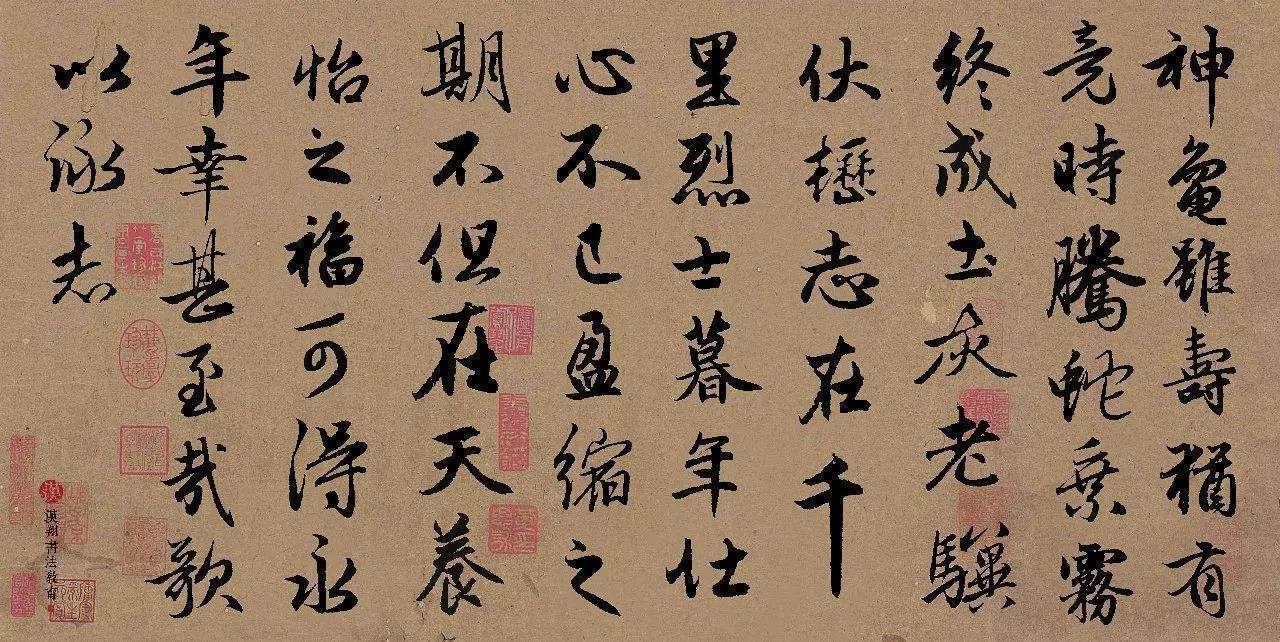 神龜雖壽猶有
竟時騰蛇乘霧
終成土灰老驥
伏櫪志在千
里烈士暮年壮
心不已盈縮之
期不但在天養
怡之福可得永
年幸甚至哉歌
以詠志
漢翔書法教育